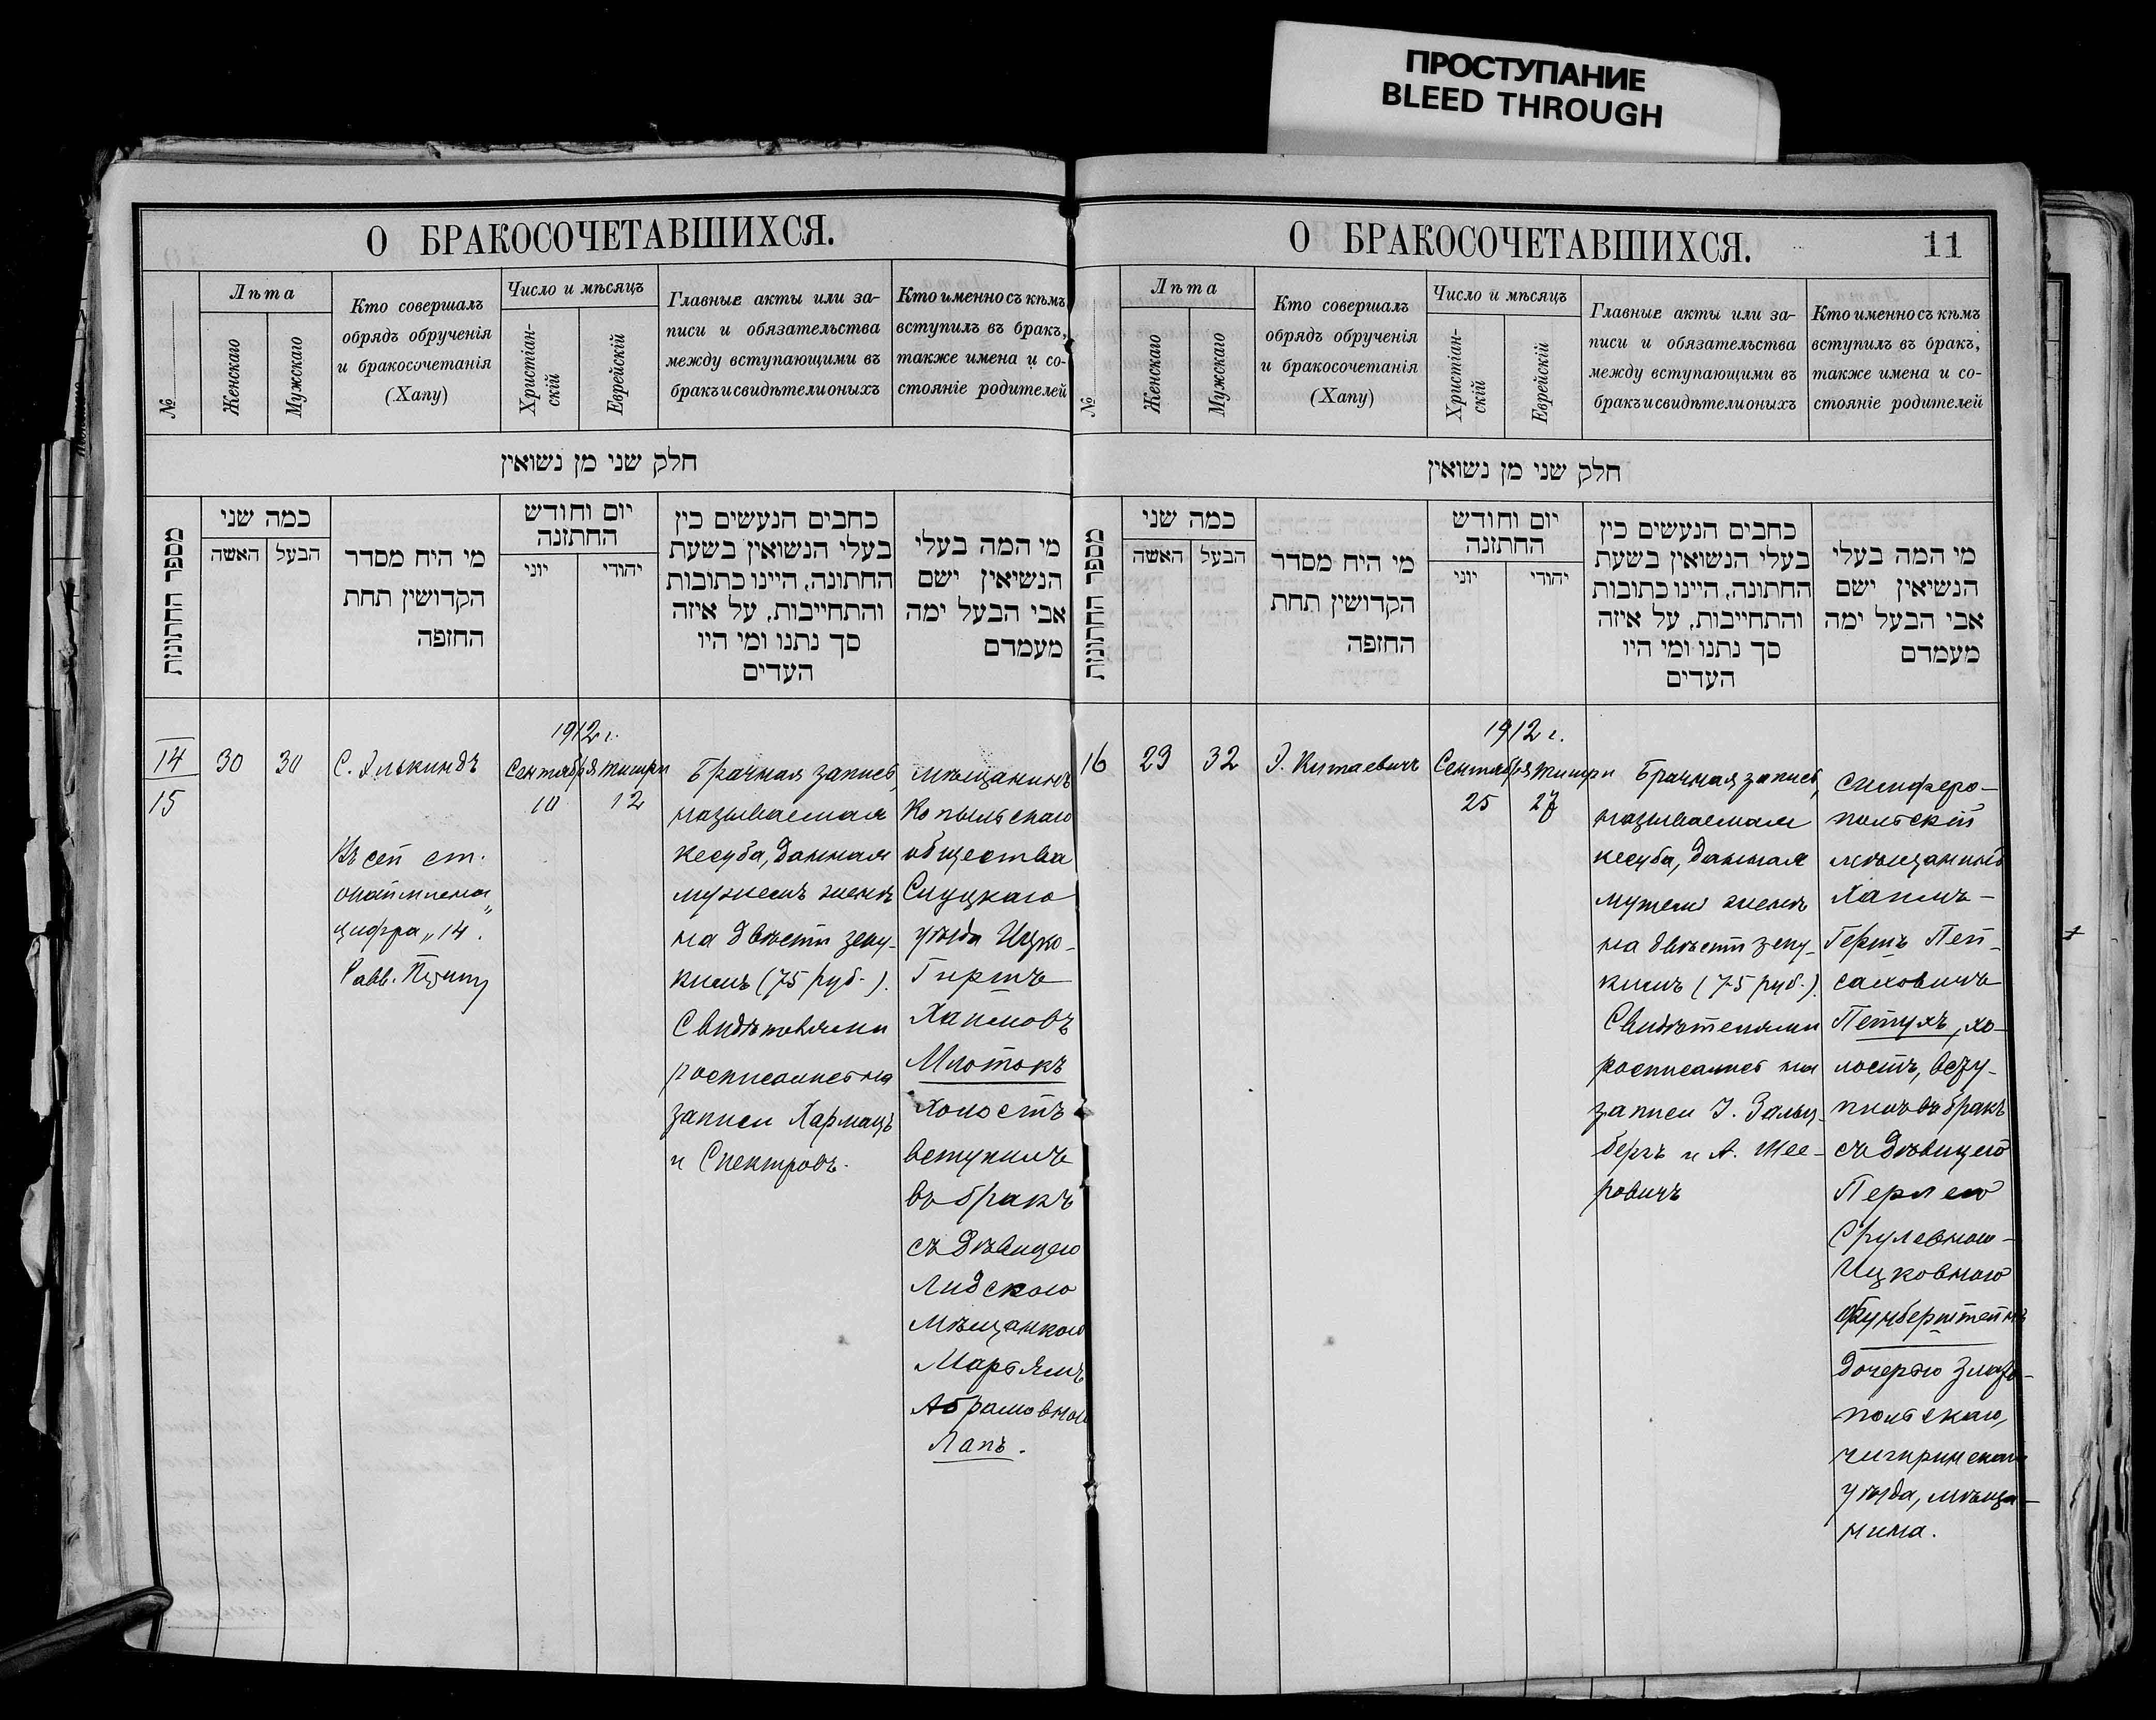 ПРОСТУПАНИЕ
BLEED THROUGH
О БРАКОСОЧЕТАВШИХСЯ.
№
Лѣта
Женскаго
Мужскаго
Кто совершалъ
обрядъ обрученія
и бракосочетанія
(Хапу)
Число и мѣсяцъ
Христіан-
скій
Еврейскій
Главные акты или за-
писи и обязательства
между вступающими въ
бракъ и свидѣтели оныхъ
Кто именно съ кѣмъ
вступилъ въ бракъ,
также имена и со-
стояніе родителей
חלק שני מן נשואין
מספר החתונות
כמה שני
האשה
הבעל
מי היח מסדר
הקדושין תחת
החזפה
יום וחודש
החתזנה
יוני
יהודי
כחבים הנעשים כין
בעלי הנשואין בשעת
החתונה, היינו כתובות
והתחייבות, על איזה
סך נתנו ומי היו
העדים
מי המה בעלי
הנשיאין ישם
אבי הבעל ימה
מעמדם
14
15
30
30
С. Элькиндъ
Въ сей ст.
цифра „14".
Равв.
1912 г.
Сентября
10
Тишри
12
Брачная запись,
называемая
кесуба, данная
мужемъ женѣ
на двѣсти зеку-
кимъ (75 руб.).
Свидѣтелями
росписались на
записи Хармацъ
и Спекторовъ.
мѣщанинъ
Копыльскаго
общества
Слуцкаго
уѣзда Ицко-
Гиршъ
Хаимовъ
Млотокъ
холостъ
вступилъ
въ бракъ
съ дѣвицею
Лидскою
мѣщанкою
Марьямъ
Абрамовною
Лапъ.
О БРАКОСОЧЕТАВШИХСЯ.
11
№
Лѣта
Женскаго
Мужскаго
Кто совершалъ
обрядъ обрученія
и бракосочетанія
(Хапу)
Число и мѣсяцъ
Христіан-
скій
Еврейскій
Главные акты или за-
писи и обязательства
между вступающими въ
бракъ и свидѣтели оныхъ
Кто именно съ кѣмъ
вступилъ въ бракъ,
также имена и со-
стояніе родителей
חלק שני מן נשואין
מספר החתונות
כמה שני
האשה
הבעל
מי היח מסדר
הקדושין תחת
החזפה
יום וחודש
החתזנה
יוני
יהודי
כחבים הנעשים כין
בעלי הנשואין בשעת
החתונה, היינו כתובות
והתחייבות, על איזה
סך נתנו ומי היו
העדים
מי המה בעלי
הנשיאין ישם
אבי הבעל ימה
מעמדם
16
29
32
Э. Китаевичъ
1912 г.
Сентября
25
Тишри
27
Брачная запись,
называемая
кесуба, данная
мужемъ женѣ
на двѣсти зеку-
кимъ (75 руб.).
Свидѣтелями
росписались на
записи І. Зальц-
бергъ и А. Мее-
ровичъ
Симферо-
польскій
мѣщанинъ
Хаимъ-
Гершъ Пей-
саховичъ
Петухъ, хо-
лостъ, всту-
пилъ въ бракъ
съ дѣвицею
Перлею
Срулевною-
Ицковною
Фунберштейнъ
дочерью Злато-
польскаго,
чигиринскаго
уѣзда, мѣща-
нина.